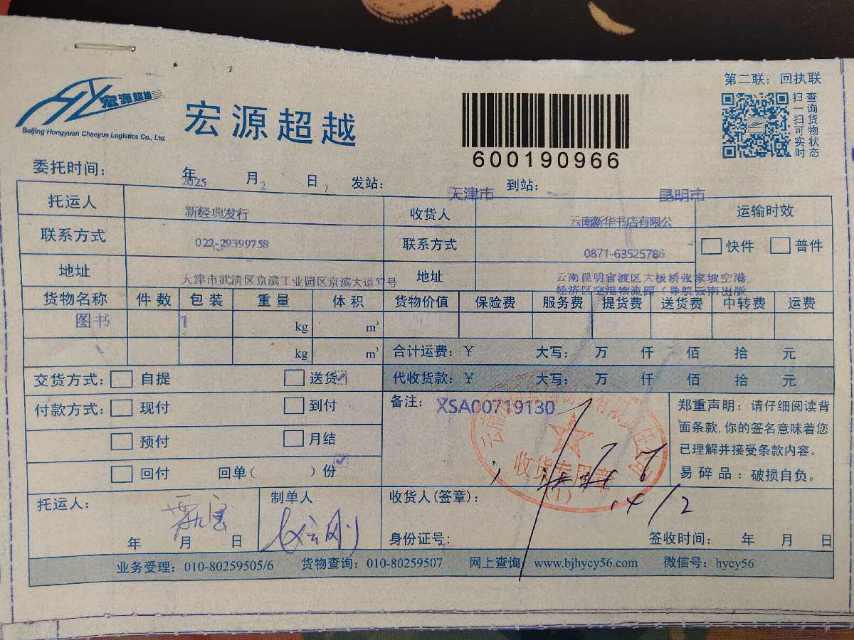 第二联：回执联
宏源超越
Beijing Hongyuan Chaoyue Logistics Co., Ltd
宏源超越
600190966
扫一扫可实时查询货物状态
委托时间： 2025 年 月 2 日 发站： 天津市 到站： 昆明市
托运人 新经典发行 收货人 云南新华书店有限公 运输时效
联系方式 022-29399758 联系方式 0871-63525786 快件 普件
地址 天津市武清区京滨工业园区京滨大道57号 地址 云南昆明官渡区大板桥张家坡空港
货物名称 件数 包装 重量 体积 货物价值 保险费 服务费 提货费 送货费 中转费 运费
图书 1 kg m³
kg m³ 合计运费：￥ 大写： 万 仟 佰 拾 元
交货方式： 自提 送货 代收货款：￥ 大写： 万 仟 佰 拾 元
付款方式： 现付 到付 备注： XSA00719130
预付 月结
回付 回单( )份
郑重声明：请仔细阅读背
面条款，你的签名意味着您
已理解并接受条款内容。
易碎品：破损自负。
收货专用章
(1)
托运人： 制单人 收货人(签章)：
年 月 日 身份证号： 签收时间： 年 月 日
业务受理：010-80259505/6 货物查询：010-80259507 网上查询：www.bjhycy56.com 微信号：hycy56